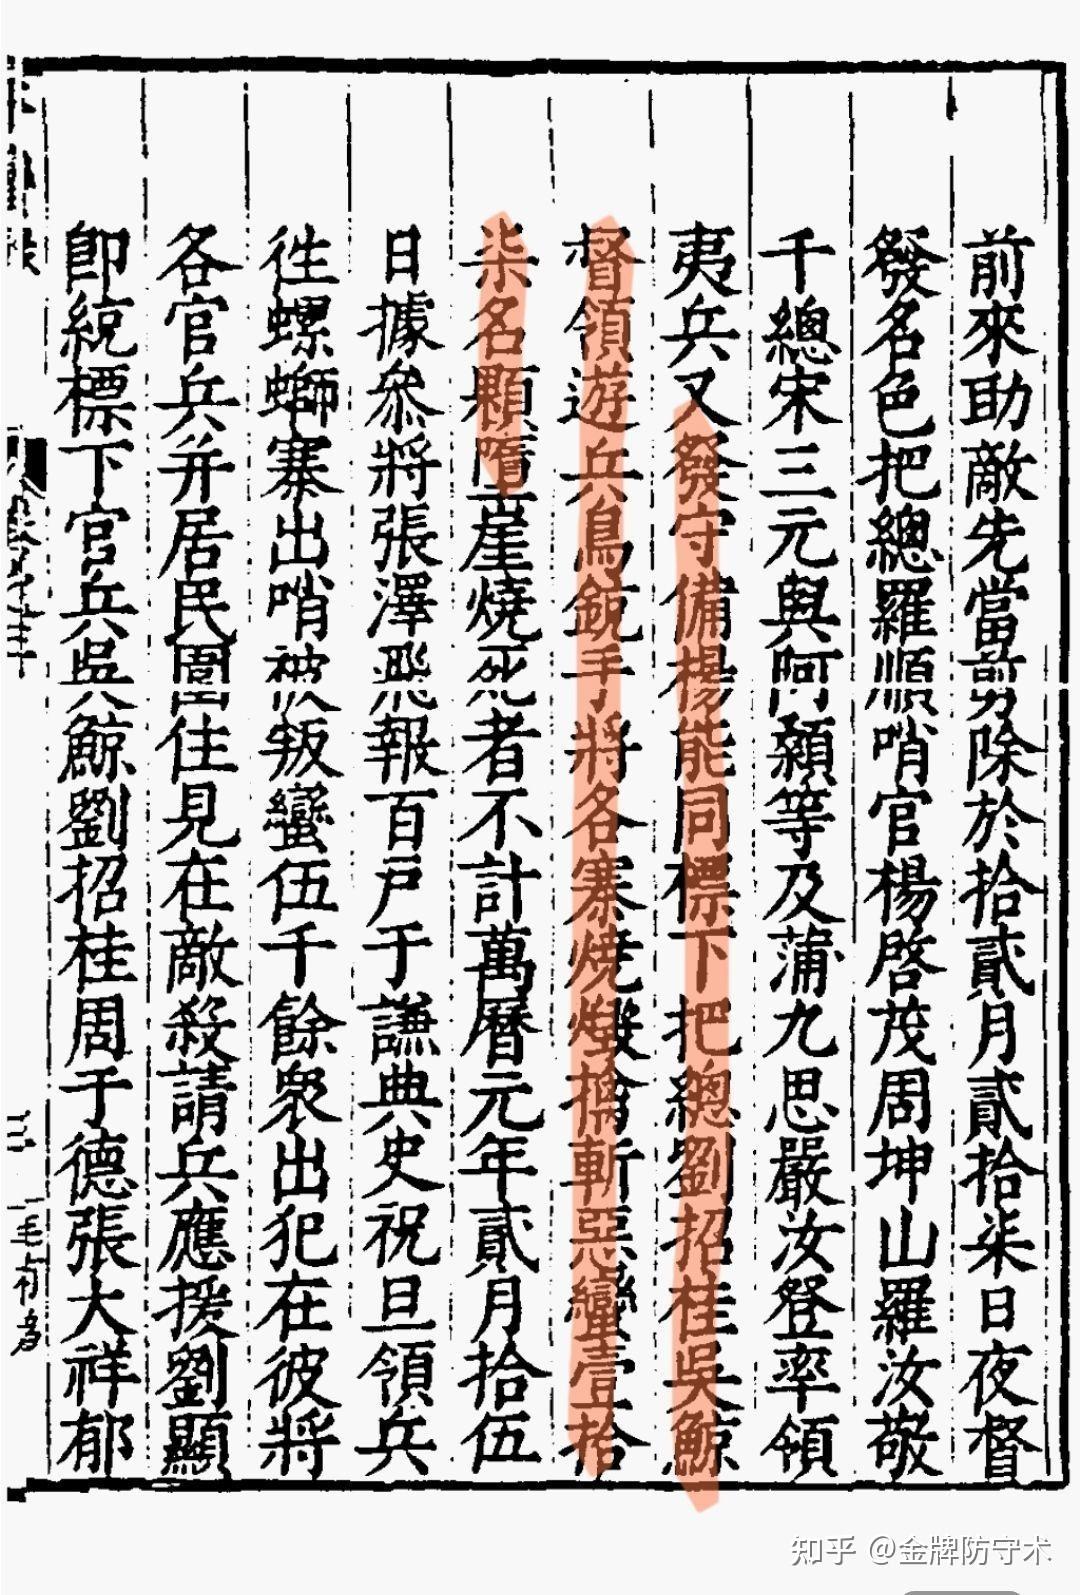 前來助敵先當剪除於拾貳月貳拾柒日夜督
發名色把總羅順哨官楊啓茂周坤山羅汝敬
千總宋三元與阿顙等及蒲九思嚴汝登率領
夷兵又發守備楊能同標下把總劉招桂吳鯨
督領遊兵鳥銃手將各寨燒燬擒斬惡蠻壹拾
柒名顆墮崖燒死者不計萬曆元年貳月拾伍
日據叅將張澤飛報百戶于謙典史祝旦領兵
徃螺螄寨出哨被叛蠻伍千餘衆出犯在彼將
各官兵并居民圍住見在敵殺請兵應援劉顯
卽統標下官兵吳鯨劉招桂周于德張大祥郁
三
知乎 @金牌防守术